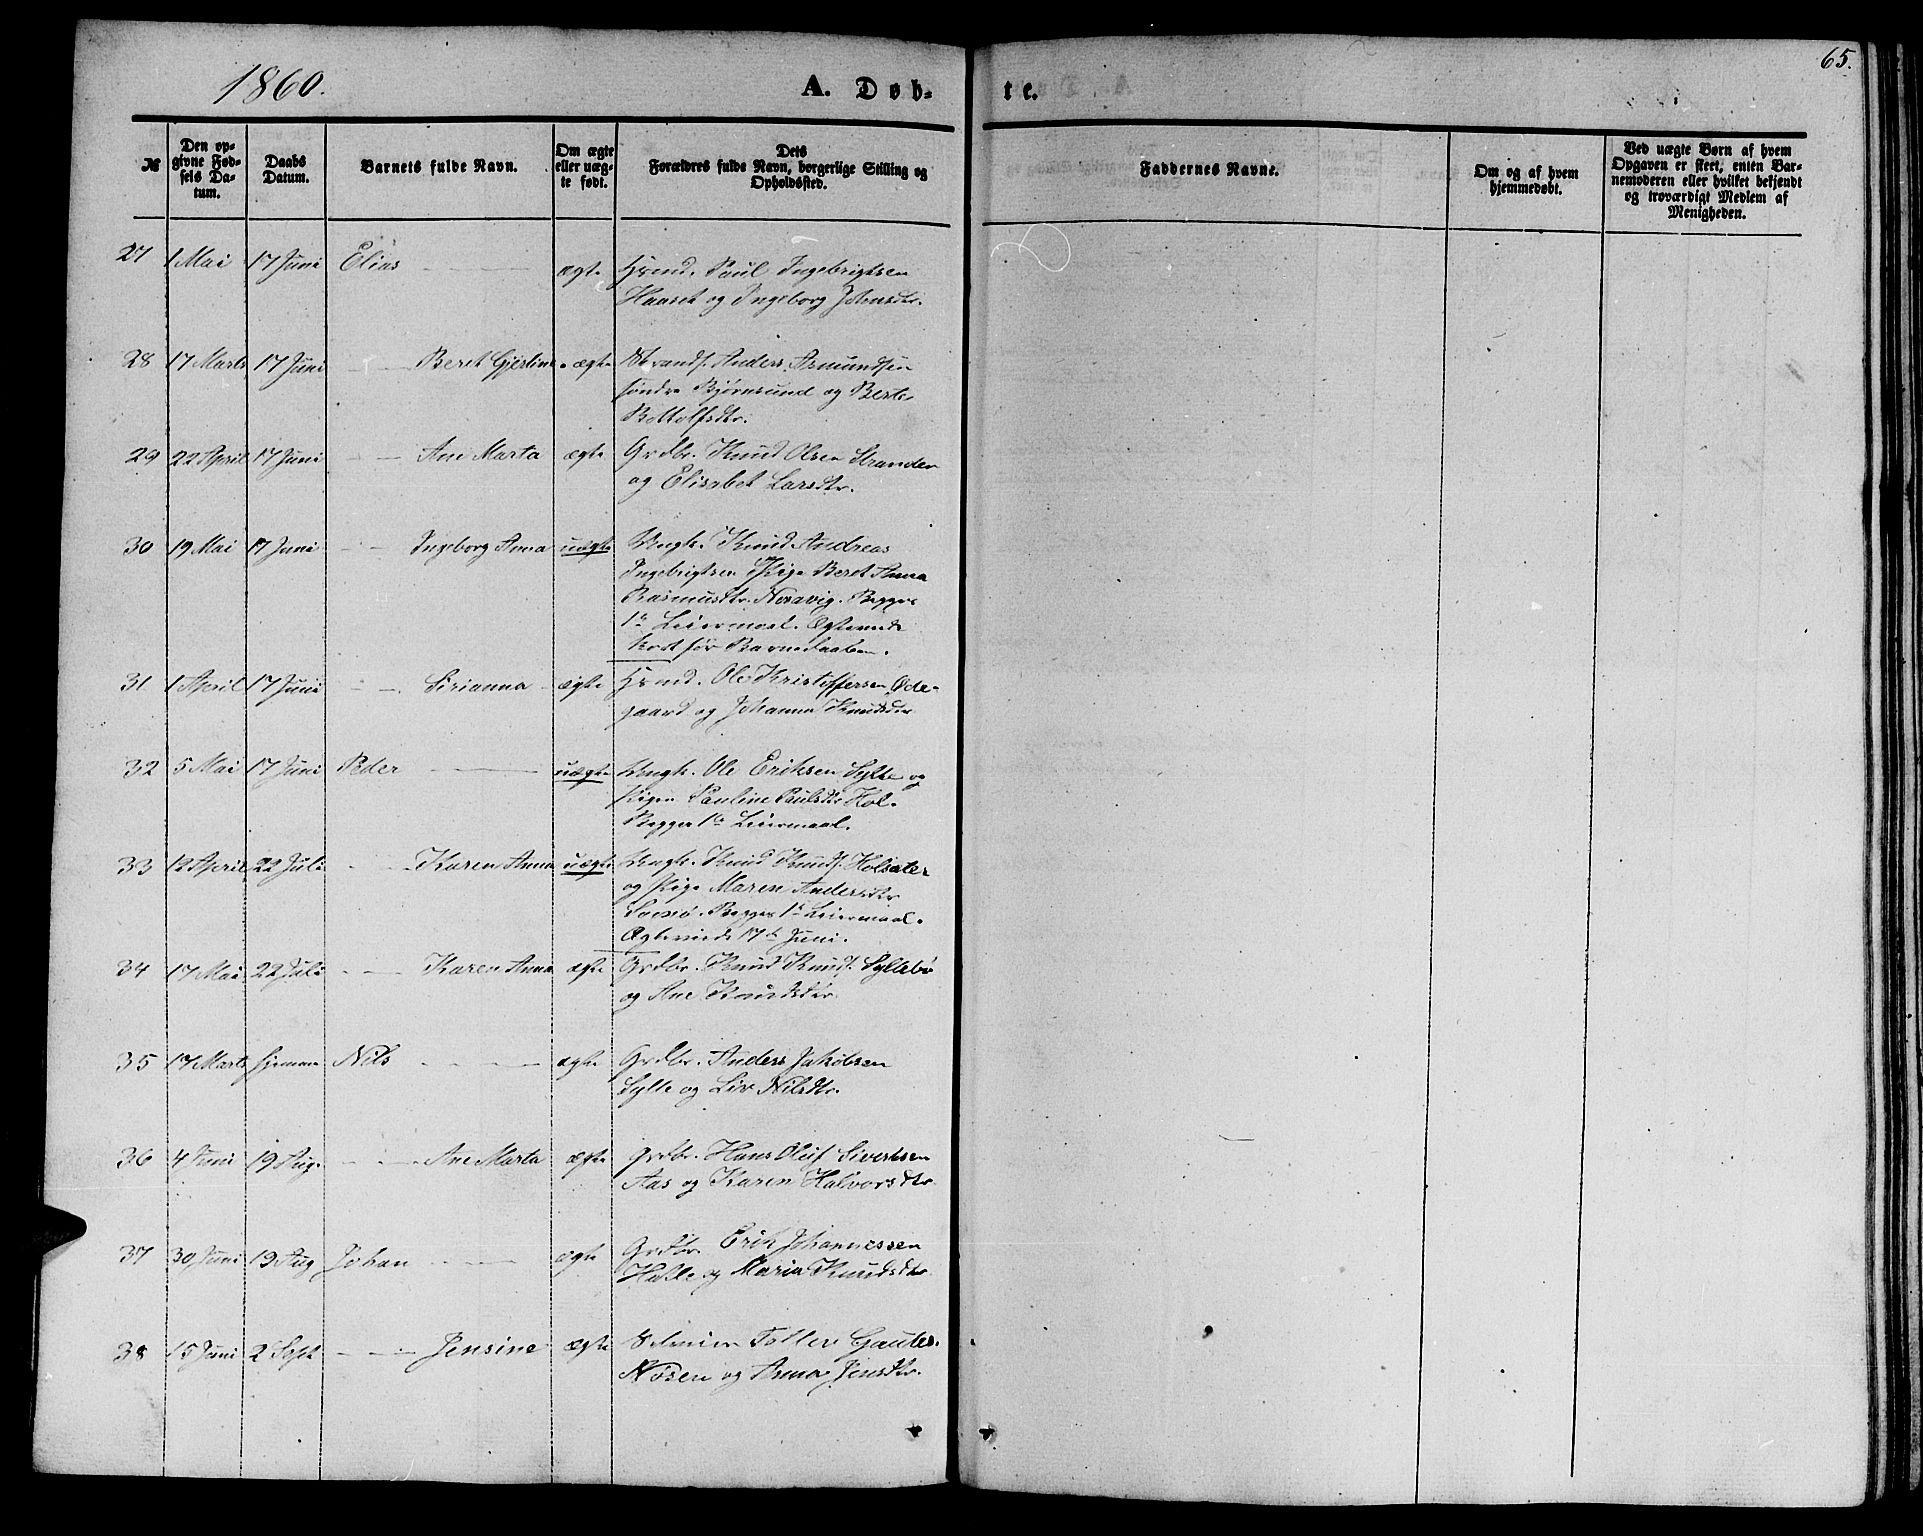 1860.
A. Døb-
te.
65.
№
Den opgivne Fødsels Datum.
Daabs Datum.
Barnets fulde Navn.
Om ægte eller uægte født.
Dets Forældres fulde Navn, borgerlige Stilling og Opholdssted.
Faddernes Navne.
Om og af hvem hjemmedøbt.
Ved uægte Børn af hvem Opgaven er skeet, enten Barnemoderen eller hvilket bekjendt og troværdigt Medlem af Menigheden.
27 1 Mai 17 Juni Elias ægte Hsmd. Paul Ingebrigtsen
Haaset og Ingeborg Johnsdtr.
28 17 Marts 17 Juni Beret Gjertine ægte Strands. Anders Asmundsen
søndre Bjørnsund og Berte
Bottolfsdtr.
29 22 April 17 Juni Ane Marta ægte Grdbr. Knud Olsen Stranden
og Elisabet Larsdtr.
30 19 Mai 17 Juni Ingeborg Anna uægte Ungk. Knud Andreas
Ingebrigtsen Pige Beret Anna
Rasmusdtr. Nesavig. Begges
1te Leiermaal. Ægteviede
kort før Barnedaaben.
31 1 April 17 Juni Sirianna ægte Hsmd. Ole Kristoffersen Øde-
gaard og Johanna Knudsdtr
32 5 Mai 17 Juni Peder uægte Ungk. Ole Eriksen Sylte og
Pigen Pauline Paulsdtr Hol.
Begges 1te Leiermaal.
33 12 April 22 Juli Karen Anna uægte Ungk. Knud Knuds. Holsæter
og Pige Maren Andersdtr
Begges 1te Leiermaal.
Ægteviede 17de Juni.
34 17 Mai 22 Juli Karen Anna ægte Grdbr. Knud Knuds. Syltebø
og Ane Knudsdtr
35 17 Marts Hjemme Nils ægte Grdbr. Anders Jakobsen
Sylte og Liv Nilsdtr.
36 4 Juni 19 Aug. Ane Marta ægte Grdbr. Hans Oluf Sivertsen
Aas og Karen Halvorsdtr
37 30 Juni 19 Aug Johan ægte Grdbr. Erik Johannessen
Halle og Maria Knudsdtr
38 15 Juni 2 Sept Jensine ægte Toller Gautes.
Nøsen og Anna Jensdtr.